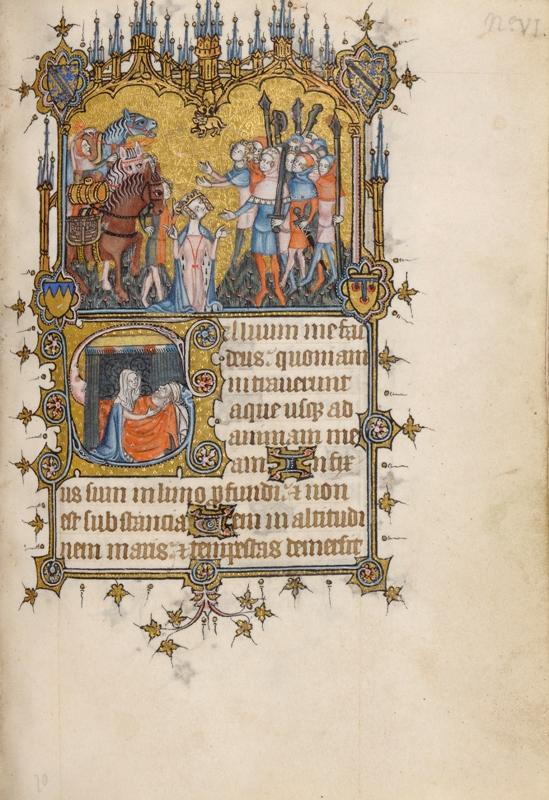 No VI.
Salvum me fac
deus: quoniam
intraverunt
aque usq; ad
animam me
am. Infix
us sum in limo p̄fundi: & non
est substancia. Veni in altitudi
nem maris: & tempestas demersit
70